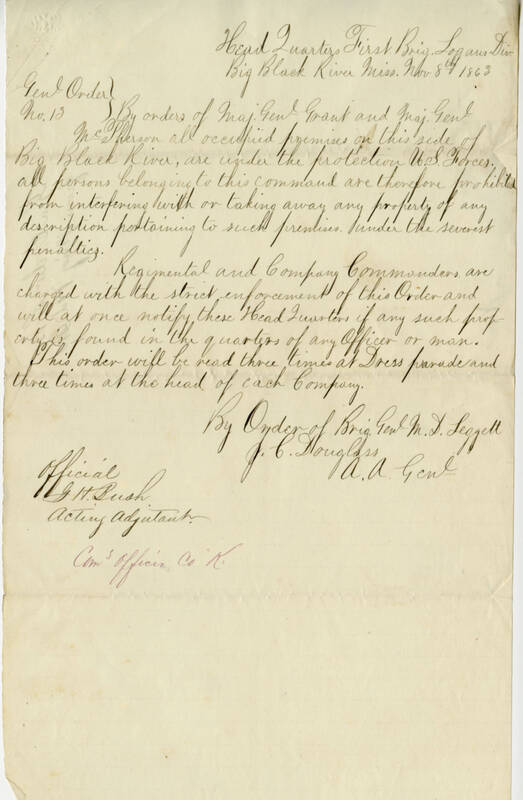 Head Quarters First Brig. Logans Div
Big Black River Miss. Nov 8th 1863
Genl Order
No. 13
By orders of Maj. Genl Grant and Maj. Genl
McPherson all occupied premises on this side of
Big Black River, are under the protection U.S. Forces.
all persons belonging to this command are therefore prohibited
from interfering with or taking away any property of any
description pertaining to such premises. under the severest
penalties.
Regimental and Company Commanders are
charged with the strict enforcement of this Order and
will at once notify these Head Quarters if any such prop-
erty is found in the quarters of any Officer or man.
This order will be read three times at Dress parade and
three times at the head of each Company.
By Order of Brig Genl M. D. Leggett
J. C. Douglass
A. A. Genl
Official
Acting Adjutant
Com's Officer Co K.